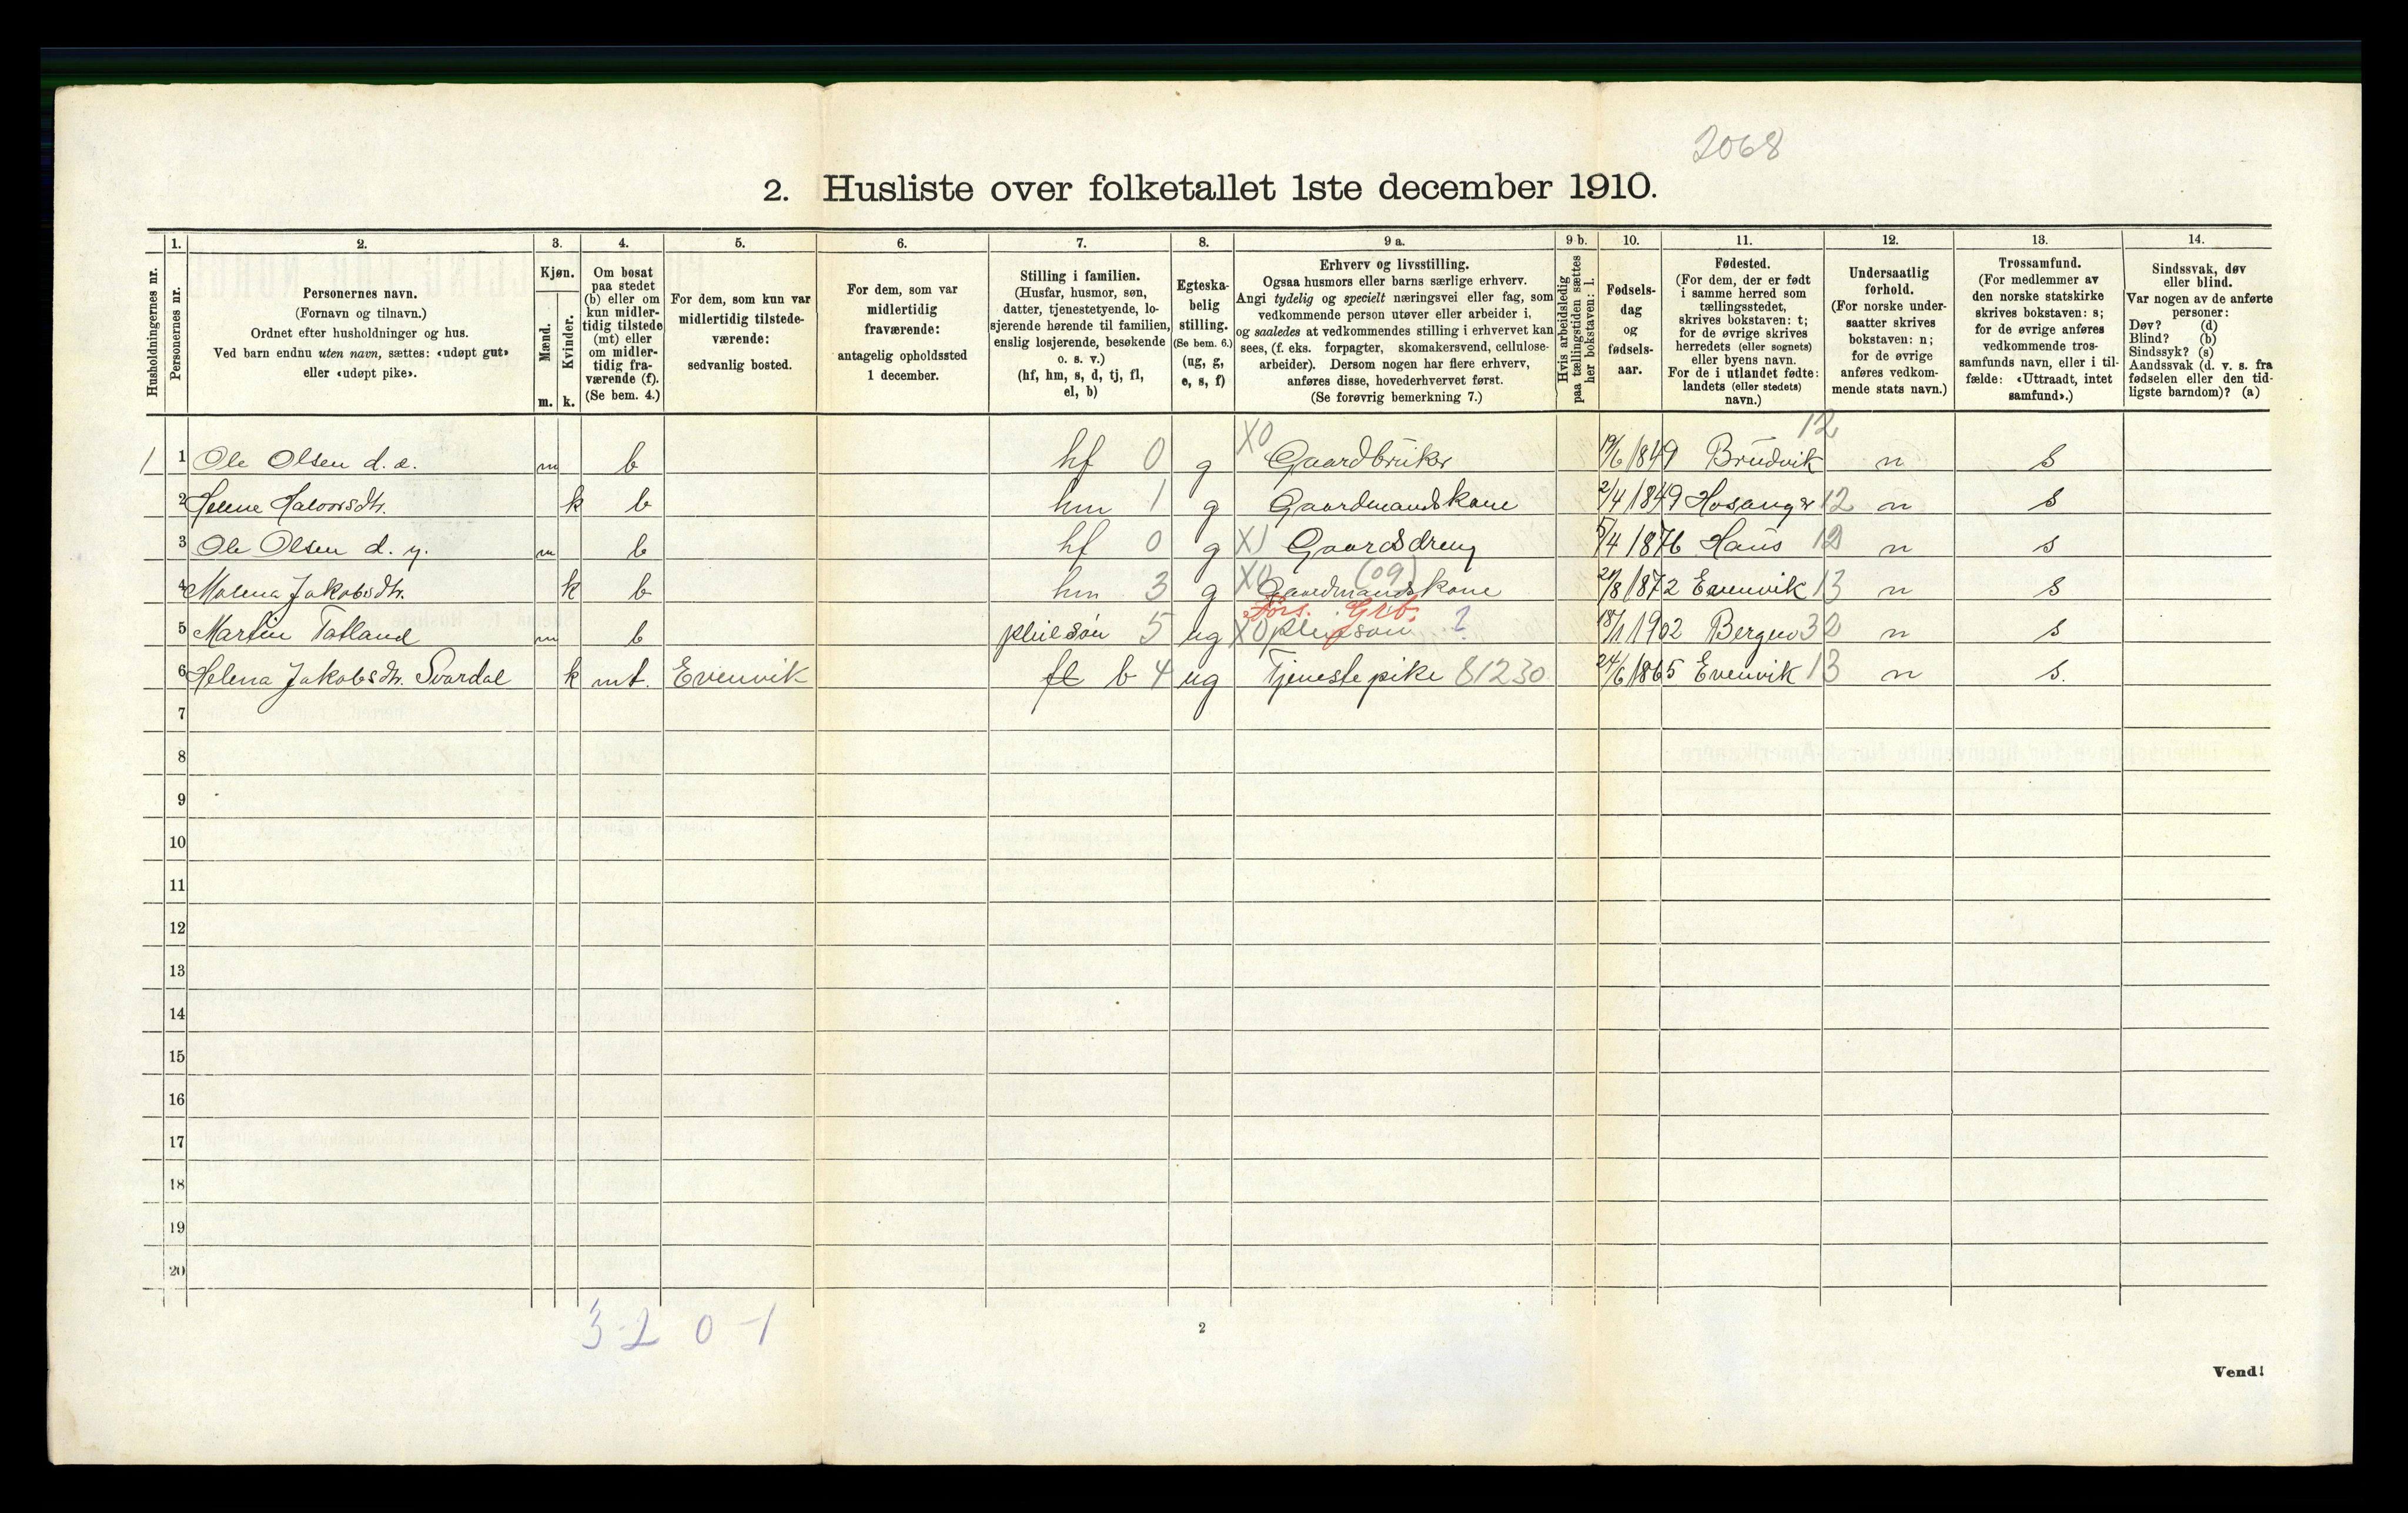 2068
2. Husliste over folketallet 1ste december 1910.
Husholdningernes nr.
1.
Personernes nr.
2.
Personernes navn.
(Fornavn og tilnavn.)
Ordnet efter husholdninger og hus.
Ved barn endnu uten navn, sættes: «udøpt gut»
eller «udøpt pike».
3.
Kjøn.
Mænd.
Kvinder.
m. k.
4.
Om bosat
paa stedet
(b) eller om
kun midler-
tidig tilstede
(mt) eller
om midler-
tidig fra-
værende (f).
(Se bem. 4.)
5.
For dem, som kun var
midlertidig tilstede-
værende:
sedvanlig bosted.
6.
For dem, som var
midlertidig
fraværende:
antagelig opholdssted
1 december.
7.
Stilling i familien.
(Husfar, husmor, søn,
datter, tjenestetyende, lo-
sjerende hørende til familien,
enslig losjerende, besøkende
o. s. v.)
(hf, hm, s, d, tj, fl,
el, b)
8.
Egteska-
belig
stilling.
(Se bem. 6.)
(ug, g,
e, s, f)
9 a.
Erhverv og livsstilling.
Ogsaa husmors eller barns særlige erhverv.
Angi tydelig og specielt næringsvei eller fag, som
vedkommende person utøver eller arbeider i,
og saaledes at vedkommendes stilling i erhvervet kan
sees, (f. eks. forpagter, skomakersvend, cellulose-
arbeider). Dersom nogen har flere erhverv,
anføres disse, hovederhvervet først.
(Se forøvrig bemerkning 7.)
9 b.
Hvis arbeidsledig
paa tællingstiden sættes
her bokstaven: l.
10.
Fødsels-
dag
og
fødsels-
aar.
11.
Fødested.
(For dem, der er født
i samme herred som
tællingsstedet,
skrives bokstaven: t;
for de øvrige skrives
herredets (eller sognets)
eller byens navn.
For de i utlandet fødte:
landets (eller stedets)
navn.)
12.
Undersaatlig
forhold.
(For norske under-
saatter skrives
bokstaven: n;
for de øvrige
anføres vedkom-
mende stats navn.)
13.
Trossamfund.
(For medlemmer av
den norske statskirke
skrives bokstaven: s;
for de øvrige anføres
vedkommende tros-
samfunds navn, eller i til-
fælde: «Uttraadt, intet
samfund».)
14.
Sindssvak, døv
eller blind.
Var nogen av de anførte
personer:
Døv? (d)
Blind? (b)
Sindssyk? (s)
Aandssvak (d. v. s. fra
fødselen eller den tid-
ligste barndom)? (a)
1 1 Ole Olsen d. æ. m b hf 0 g X0 Gaardbruker 19/6 1849 Brudvik 12 n s
2 Helene Halvorsdtr. k b hm 1 g Gaardmandskone 2/4 1849 Hosanger 12 n s
3 Ole Olsen d. y. m b hf 0 g X1 Gaardsdreng 5/4 1876 Haus 12 n s
4 Malena Jakobsdtr. k b hm 3 g X0 (09) Gaardmandskone 21/8 1872 Evenvik 13 n s
Førs. Grb.
5 Martin Tatland m b pleiesøn 5 ug X0 pleiesøn ? 18/1 1902 Bergen 30 n s
6 Helena Jakobsdtr. Svardal k mt. Evenvik fl b 4 ug Tjenestepike 81230 24/6 1865 Evenvik 13 n s.
7
8
9
10
11
12
13
14
15
16
17
18
19
20
3-2 0-1
2
Vend!